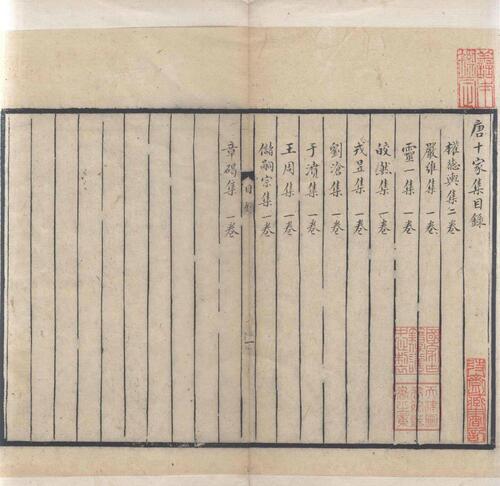 唐十家集目錄
權德輿集二卷
嚴維集一卷
靈一集一卷
皎然集一卷
戎昱集一卷
劉滄集一卷
于濆集一卷
王周集一卷
儲嗣宗集一卷
目錄
一
章碣集一卷